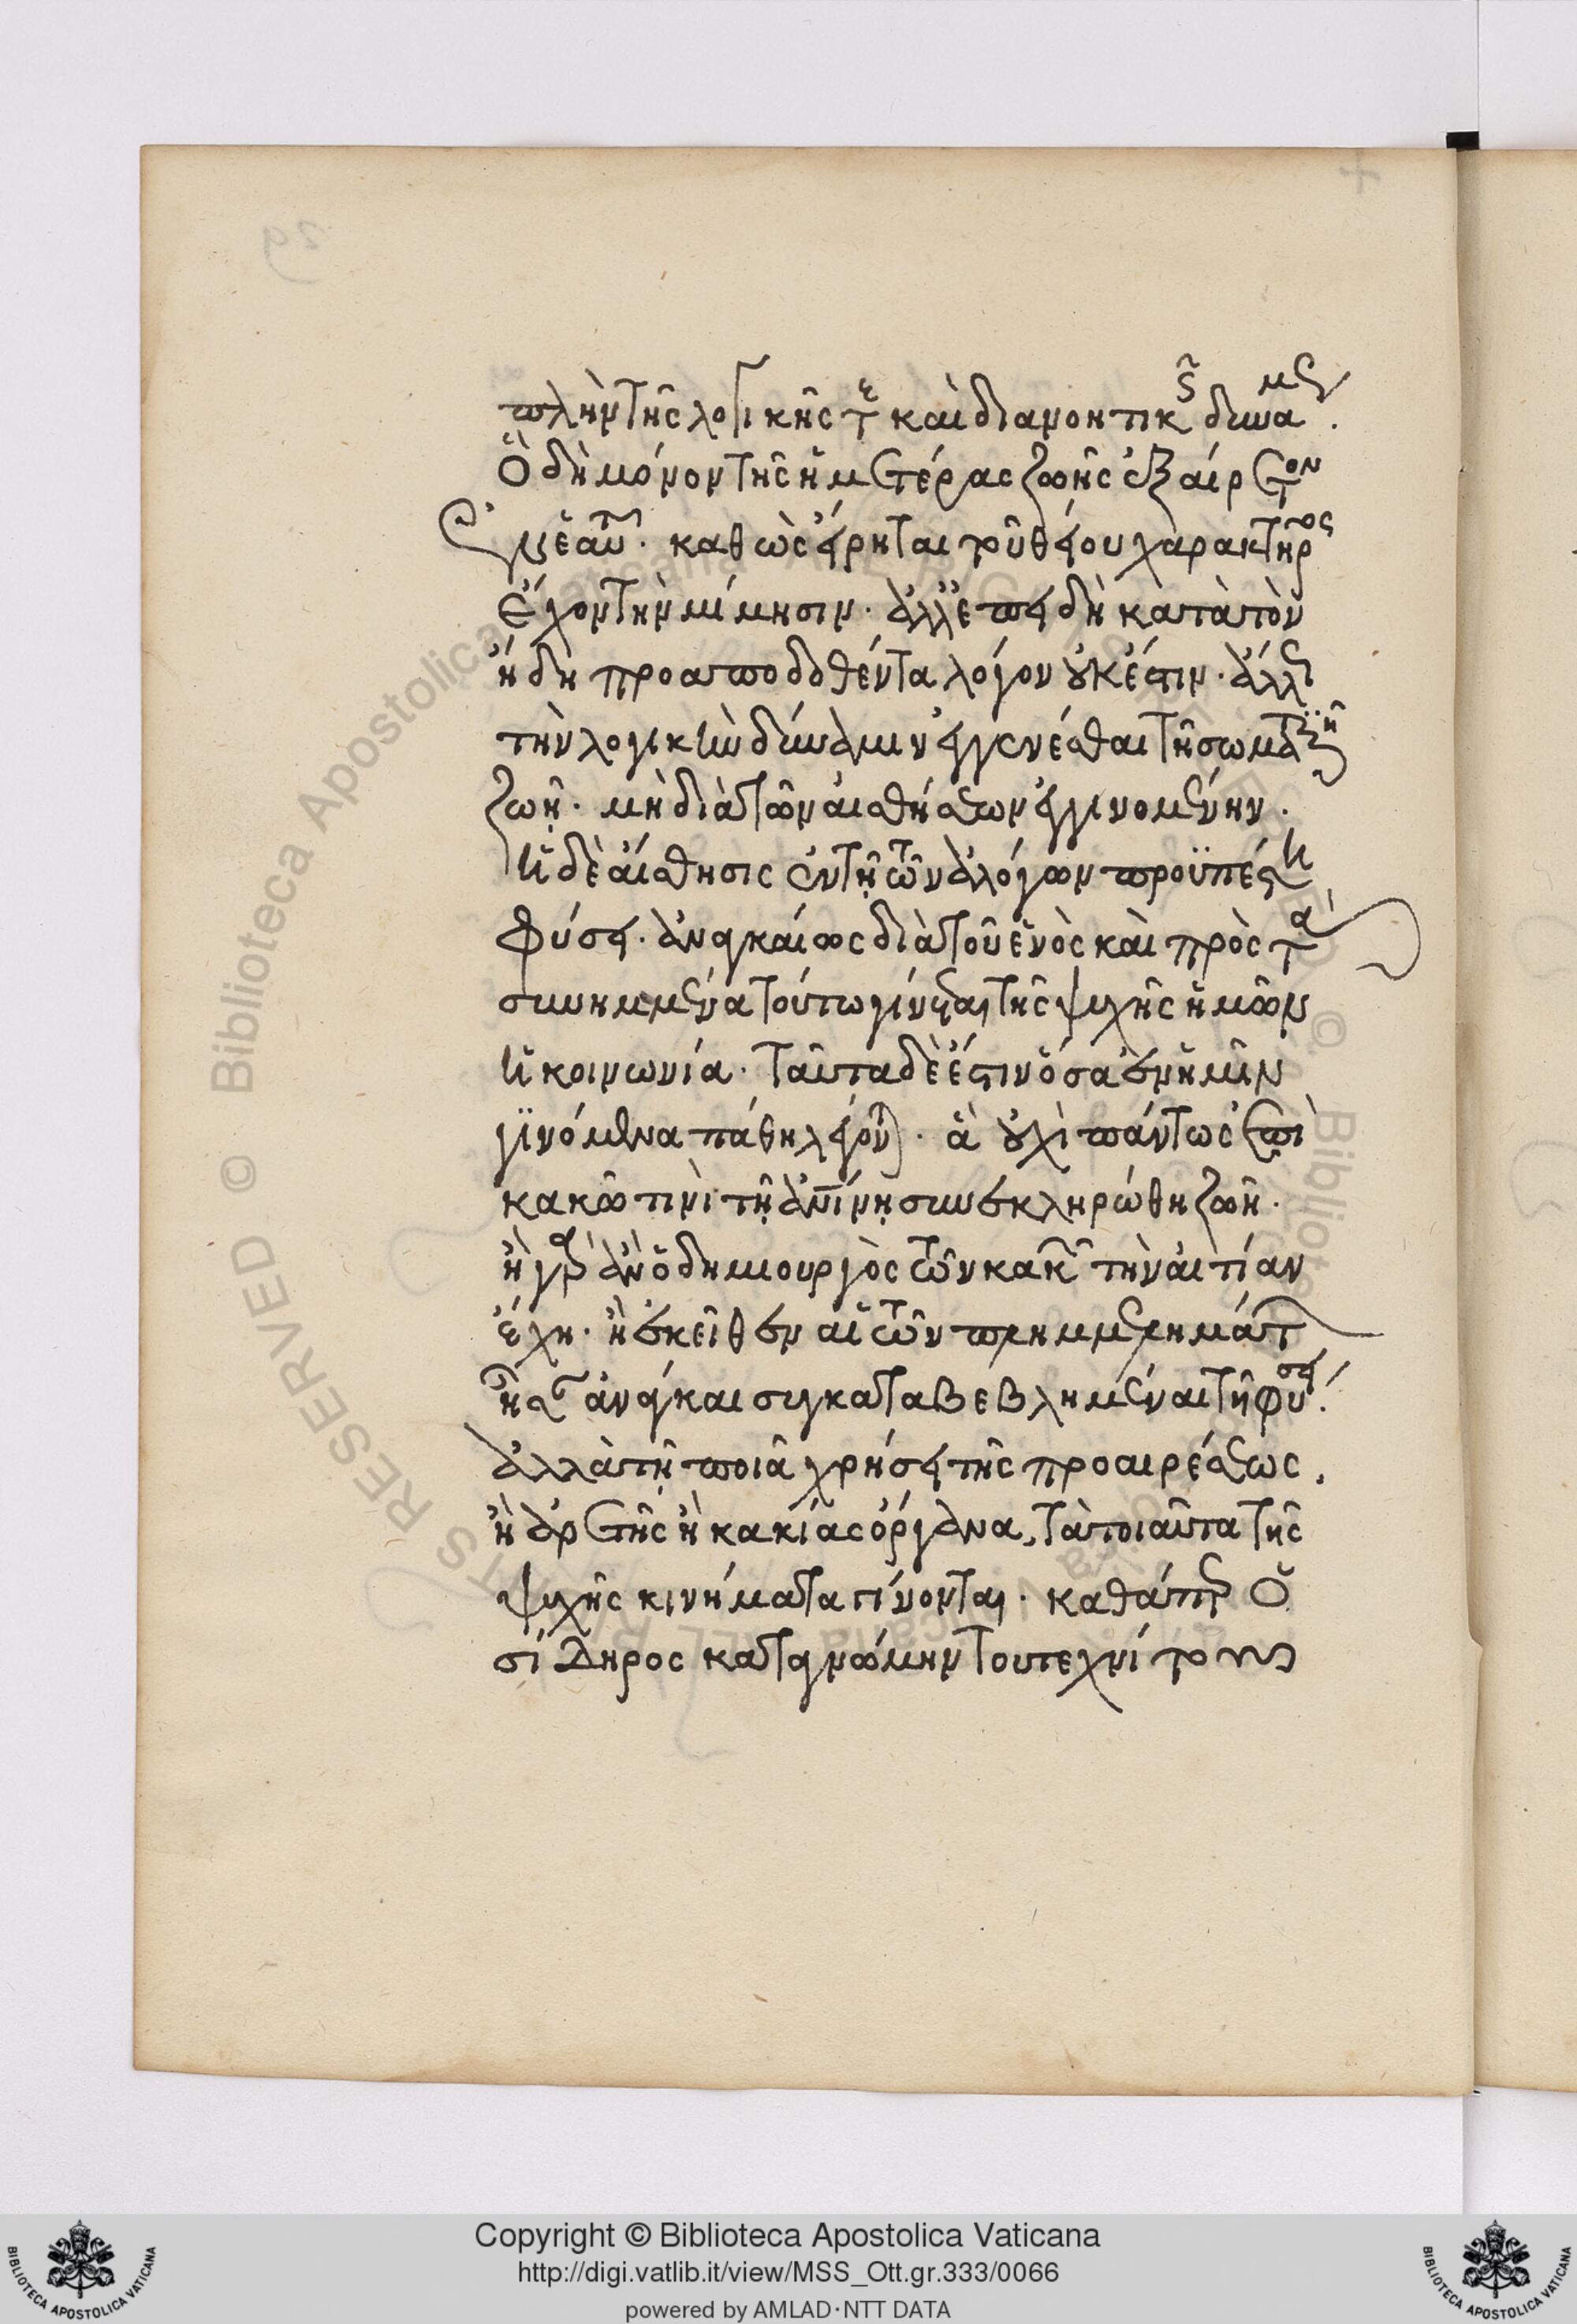 πλὴν τῆς λογικῆς τε καὶ διανοητικῆς δυνάμεως.
Ὃ δὴ μόνον τῆς ἡμετέρας ζωῆς ἐξαίρετον
ἐν ἑαυτῶ. καθὼς εἴρηται τοῦ θείου χαρακτῆρος
ἔχον τὴν μίμησιν. ἀλλ' ἐπειδὴ κατὰ τὸν
ἤδη προαποδοθέντα λόγον οὐκ ἔστιν. ἄλλως
τὴν λογικὴν δύναμιν ἐγγενέσθαι τῆ σωματικῆ
ζωῆ. μὴ διὰ τῶν αἰσθήσεων ἐγγινομένην.
ἡ δὲ αἴσθησις ἐν τῆ τῶν ἀλόγων προϋπέστη
φύσει. ἀναγκαίως διὰ τοῦ ἑνὸς καὶ πρὸς τὰ
συνημμένα τούτω γίνεται τῆς ψυχῆς ἡμῶν
ἡ κοινωνία. ταῦτα δὲ ἐστιν ὅσα ἐν ἡμῖν
γϊνόμενα πάθη λέγεται. ἃ οὐχὶ πάντως ἐπὶ
κακῶ τινὶ τῆ ἀνθρωπίνη συνεκληρώθη ζωῆ.
ἢ γὰρ ἂν ὁ δημιουργὸς τῶν κακῶν τὴν αἰτίαν
ἔχη. ἢ ἐκεῖθεν αἱ τῶν πλημμελημάτων
ἦσαν ἀνάγκαι συγκαταβεβλημέναι τῆ φύσει.
ἀλλὰ τῆ ποιᾶ χρήσει τῆς προαιρέσεως,
ἢ ἀρετῆς ἢ κακίας ὄργανα, τὰ τοιαῦτα τῆς
ψυχῆς κινήματα γίνονται. καθάπερ ὁ
σίδηρος κατὰ γνώμην τοῦ τεχνίτου
Copyright © Biblioteca Apostolica Vaticana
http://digi.vatlib.it/view/MSS_Ott.gr.333/0066
powered by AMLAD·NTT DATA